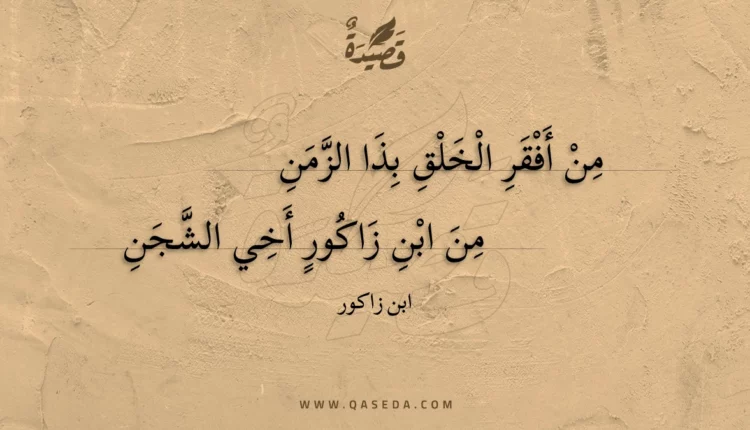 قَصِيدَةٌ
مِنْ أَفْقَرِ الْخَلْقِ بِذَا الزَّمَنِ
مِنَ ابْنِ زَاكُورٍ أَخِي الشَّجَنِ
ابن زاكور
WWW.QASEDA.COM